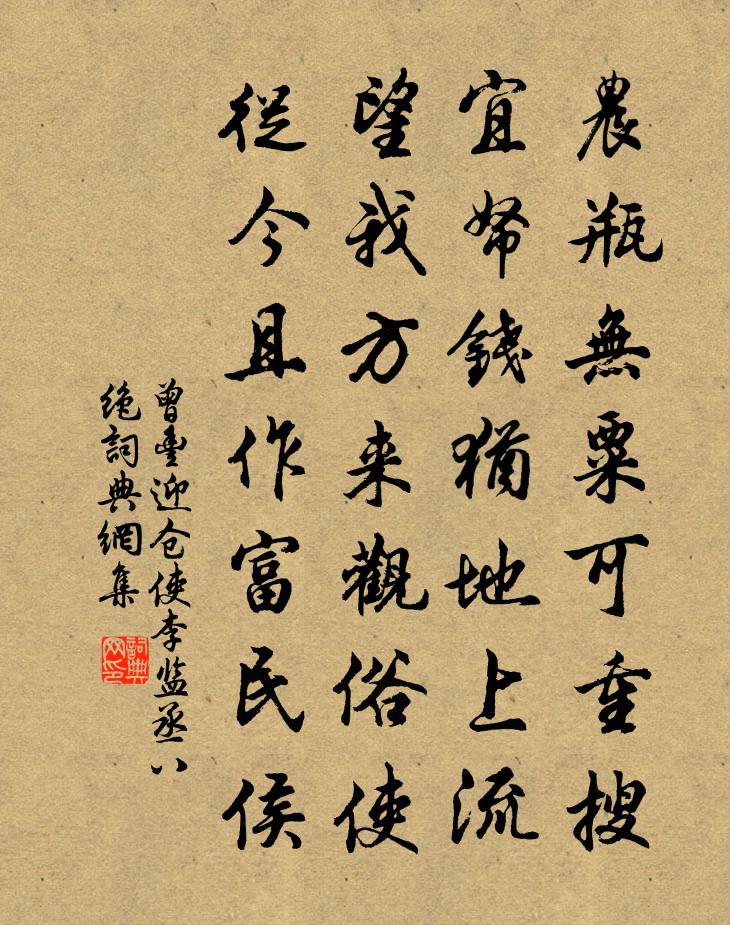 農瓶無粟可重搜
宜帑錢猶地上流
望我方来觀俗使
從今且作富民侯
曾豊迎仓使李监丞八
绝詞典網集
詞典网印